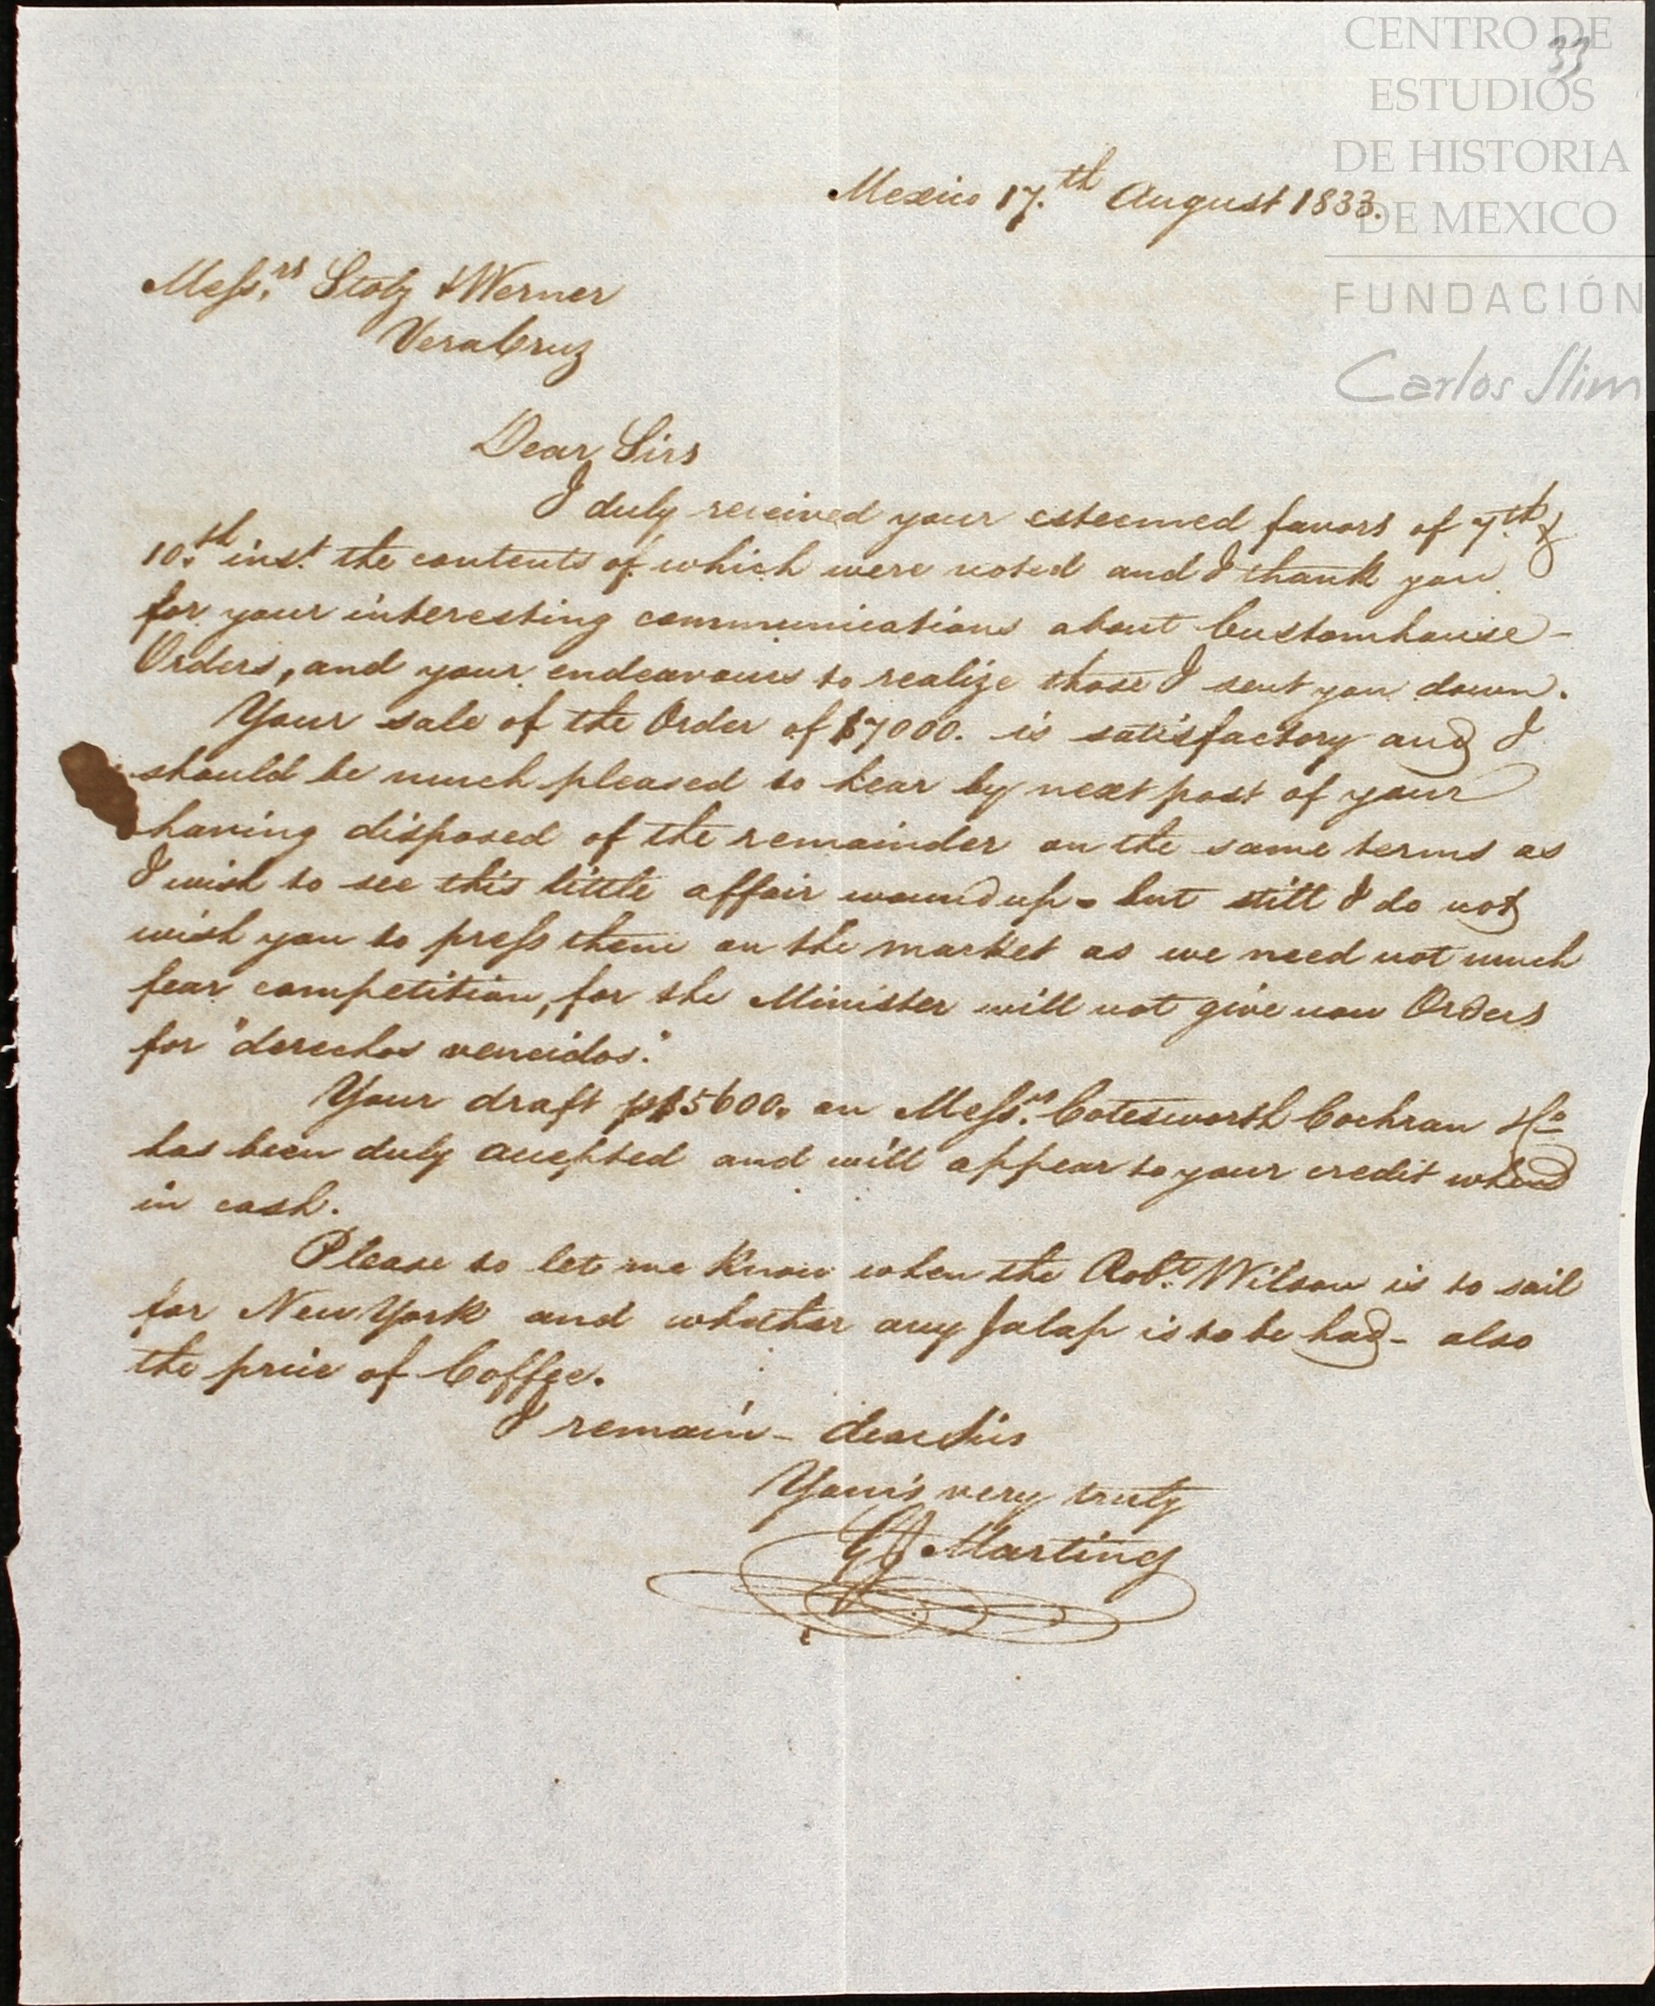 CENTRO DE
ESTUDIOS
DE HISTORIA
DE MEXICO
FUNDACIÓN
Carlos Slim
33
Mexico 17.th August 1833.
Mess.rs Stolz & Werner
Vera Cruz
Dear Sirs
I duly received your esteemed favors of 7.th &
10.th inst. the contents of which were noted and I thank you
for your interesting communications about Customhouse-
Orders, and your endeavours to realize those I sent you down.
Your sale of the Order of $7000. is satisfactory and I
should be much pleased to hear by next post of your
having disposed of the remainder on the same terms as
I wish to see this little affair wound up - but still I do not
wish you to press them on the market as we need not much
fear competition, for the Minister will not give now Orders
for "derechos vencidos."
Your draft p $5600. on Mess.rs Cotesworth Cochran & Co
has been duly accepted and will appear to your credit when
in cash.
Please to let me know when the Rob.t Wilson is to sail
for New York and whether any Jalap is to be had - also
the price of Coffee.
I remain - dear Sirs
Your's very truly
Marting